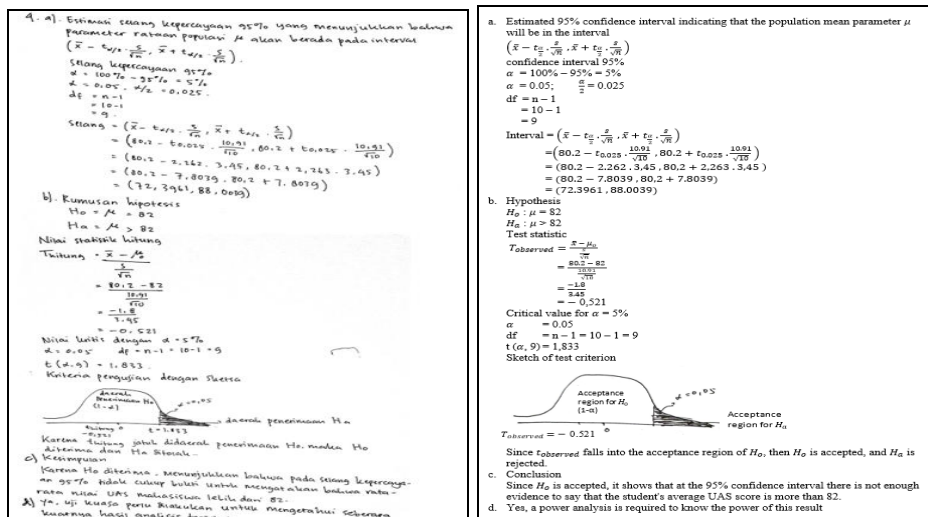 4. a). Estimasi selang kepercayaan 95% yang menunjukkan bahwa
parameter rataan populasi μ akan berada pada interval
(x̄ - t α/2 · s/√n , x̄ + t α/2 · s/√n).
Selang kepercayaan 95%
α = 100% - 95% = 5%
α = 0.05. α/2 = 0,025.
df = n-1
= 10-1
= 9.
Selang = (x̄ - t α/2 · s/√n , x̄ + t α/2 · s/√n)
= (80,2 - t 0.025 · 10,91/√10 , 80,2 + t 0,025 · 10,91/√10)
= (80,2 - 2,262 . 3,45, 80,2 + 2,263 . 3,45)
= (80,2 - 7,8039 , 80,2 + 7,8039)
= (72,3961, 88,0039)
b). Rumusan hipotesis
Ho = μ = 82
Ha = μ > 82
Nilai statistik hitung
Thitung = x̄ - μo / s/√n
= 80,2 - 82 / 10,91/√10
= -1,8 / 3,45
= -0,521
Nilai kritis dengan α = 5%
α = 0,05 df = n-1 = 10-1 = 9
t (α,9) = 1,833.
Kriteria pengujian dengan sketsa
daerah
penerimaan Ho
(1-α)
α = 0,05
daerah penerimaan Ha
thitung
-0,521
0
t = 1,833
Karena thitung jatuh didaerah penerimaan Ho, maka Ho
diterima dan Ha ditolak.
c) Kesimpulan
Karena Ho diterima, menunjukkan bahwa pada selang kepercaya-
an 95% tidak cukup bukti untuk mengatakan bahwa rata-
rata nilai UAS mahasiswa lebih dari 82.
d) Ya, uji kuasa perlu dilakukan untuk mengetahui seberapa
kuatnya hasil analisis
a. Estimated 95% confidence interval indicating that the population mean parameter μ
will be in the interval
(x̄ − t α/2 . s/√n , x̄ + t α/2 . s/√n)
confidence interval 95%
α = 100% − 95% = 5%
α = 0.05; α/2 = 0.025
df = n − 1
= 10 − 1
= 9
Interval = (x̄ − t α/2 . s/√n , x̄ + t α/2 . s/√n)
= (80.2 − t0.025 . 10.91/√10 , 80.2 + t0.025 . 10.91/√10)
= (80.2 − 2.262 . 3,45 , 80,2 + 2,263 . 3,45 )
= (80.2 − 7.8039 , 80,2 + 7.8039)
= (72.3961, 88.0039)
b. Hypothesis
Ho : μ = 82
Ha : μ > 82
Test statistic
Tobserved = x̄ − μo / s/√n
= 80.2 − 82 / 10.91/√10
= −1.8 / 3.45
= − 0,521
Critical value for α = 5%
α = 0.05
df = n − 1 = 10 − 1 = 9
t (α, 9) = 1,833
Sketch of test criterion
Acceptance
region for Ho
(1-α)
α = 0,05
Acceptance
region for Ha
Tobserved = − 0.521
0
Since tobserved falls into the acceptance region of Ho, then Ho is accepted, and Ha is
rejected.
c. Conclusion
Since Ho is accepted, it shows that at the 95% confidence interval there is not enough
evidence to say that the student's average UAS score is more than 82.
d. Yes, a power analysis is required to know the power of this result